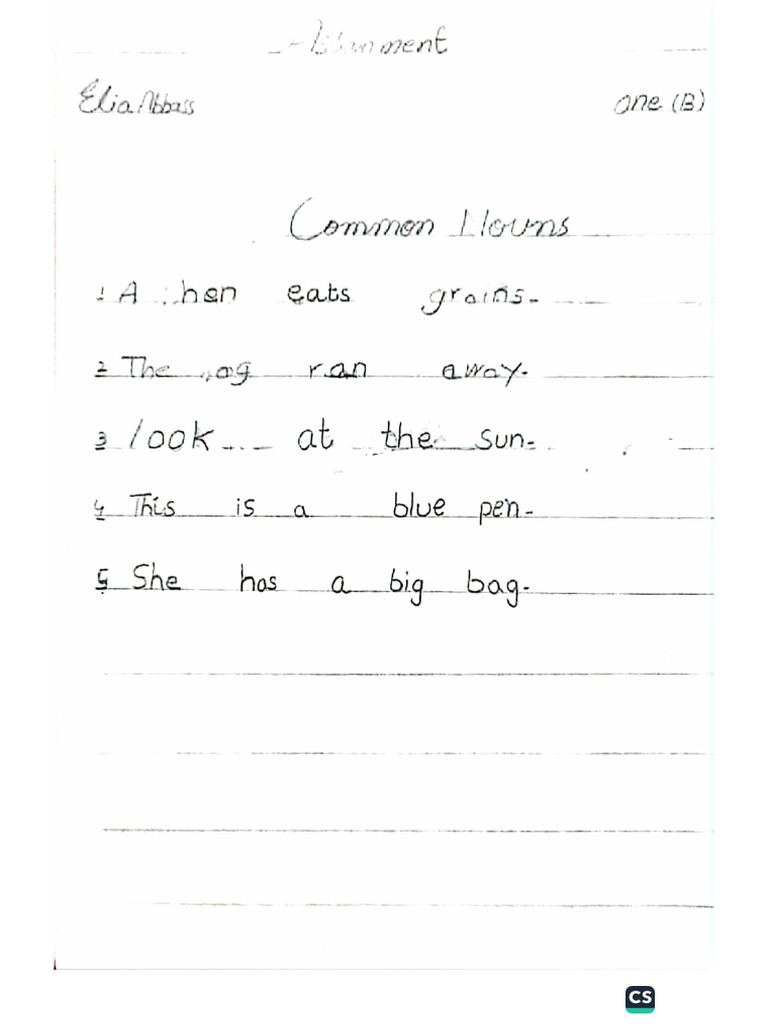 Assignment
Elia Abbass one (B)
Common Nouns
1 A hen eats grains.
2 The ran away.
3 look at the sun.
4 This is a blue pen.
5 She has a big bag.
CS